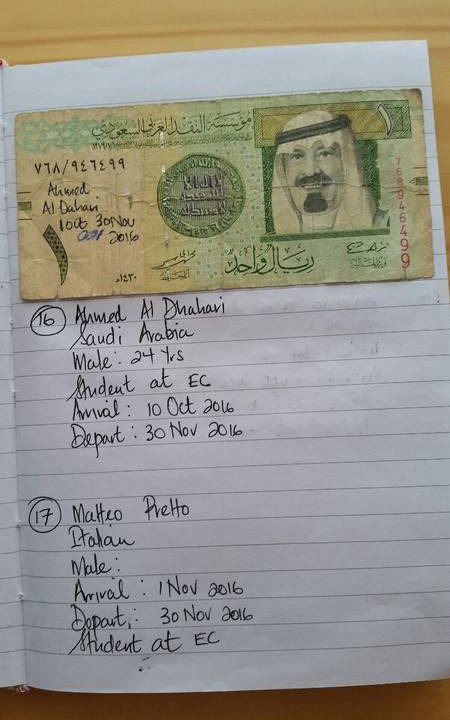 مؤسسة النقد العربي السعودي
٧٦٨/٩٤٦٤٩٩
١
Ahmed
Al Dahari
10 Oct 30 Nov
2016
768946499
١
ريال واحد
١٤٣٠هـ
16 Ahmed Al Dhahari
Saudi Arabia
Male: 24 Yrs
Student at EC
Arrival: 10 Oct 2016
Depart: 30 Nov 2016
17 Matteo Pretto
Italian
Male:
Arrival: 1 Nov 2016
Depart,: 30 Nov 2016
Student at EC